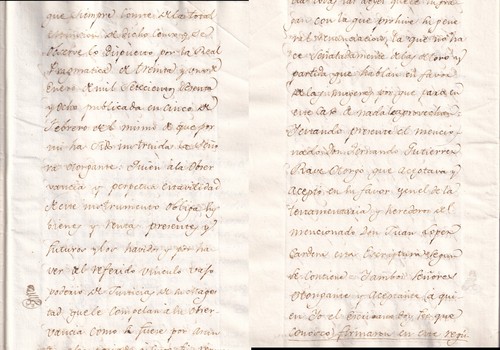 que siempre conste de la total
extincion de dicho Censo, y se
observe lo dispuesto por la Real
Pragmatica de treinta y uno de
Enero de mil setecientos sesenta
y ocho, publicada en cinco de
Febrero de el mismo de que por
mi ha sido instruida la Señora
otorgante: Quien à la obser
vancia y perpetua estavilidad
de este instrumento obliga los
bienes y rentas presentes y
futuros y los havidos y por ha
ver del referido vinculo vajo
poderio de Justicias de su Mages
tad que le compelan à su obser
vancia como si fuese por
con la que prohive la gene
ral renunciacion, la que no ha
ce señaladamente de las de toro y
partida que hablan en favor
de las mugeres por que para en
este caso de nada la aprovechan:
Y estando presente el mencio
nado don Fernando Gutierrez
Rave otorgo, que aceptava y
acepto, en su favor, y en el de la
testamentaria y herederos del
mencionado Don Juan
Cardens esta Escriptura segun
se contiene Y ambos Señores
otorgante y Aceptante (a quie
nes Yo el Escrivano doy fee que
conozco) firmaron en este regis